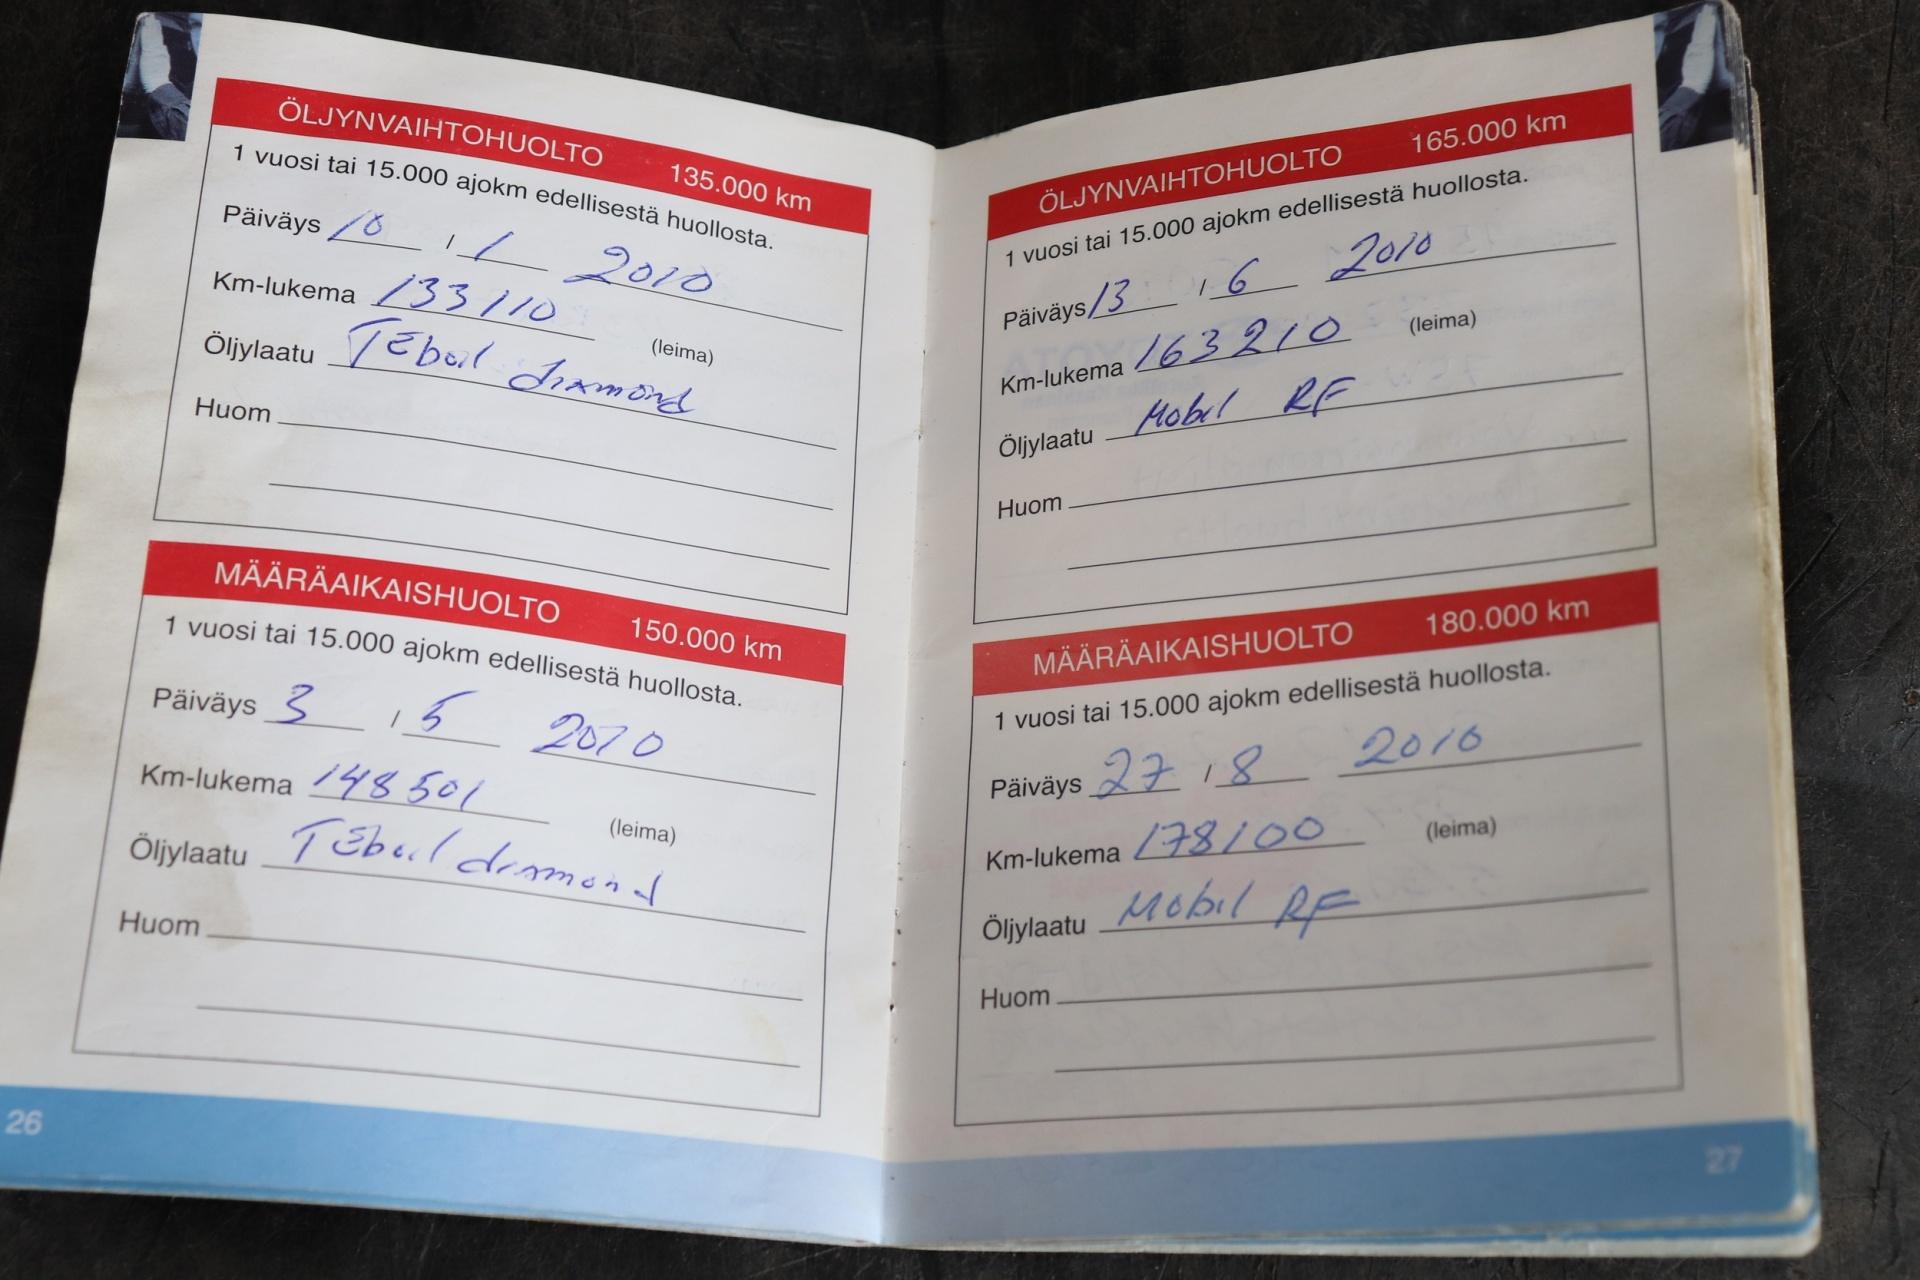 ÖLJYNVAIHTOHUOLTO 135.000 km
1 vuosi tai 15.000 ajokm edellisestä huollosta.
Päiväys 10 / 1 2010
Km-lukema 133110
(leima)
Öljylaatu TEboil diamond
Huom
MÄÄRÄAIKAISHUOLTO 150.000 km
1 vuosi tai 15.000 ajokm edellisestä huollosta.
Päiväys 3 / 5 2010
Km-lukema 148501
(leima)
Öljylaatu TEboil diamond
Huom
26
ÖLJYNVAIHTOHUOLTO 165.000 km
1 vuosi tai 15.000 ajokm edellisestä huollosta.
Päiväys 13 / 6 2010
Km-lukema 163210 (leima)
Öljylaatu Mobil RF
Huom
MÄÄRÄAIKAISHUOLTO 180.000 km
1 vuosi tai 15.000 ajokm edellisestä huollosta.
Päiväys 27 / 8 2010
Km-lukema 178100 (leima)
Öljylaatu Mobil RF
Huom
27